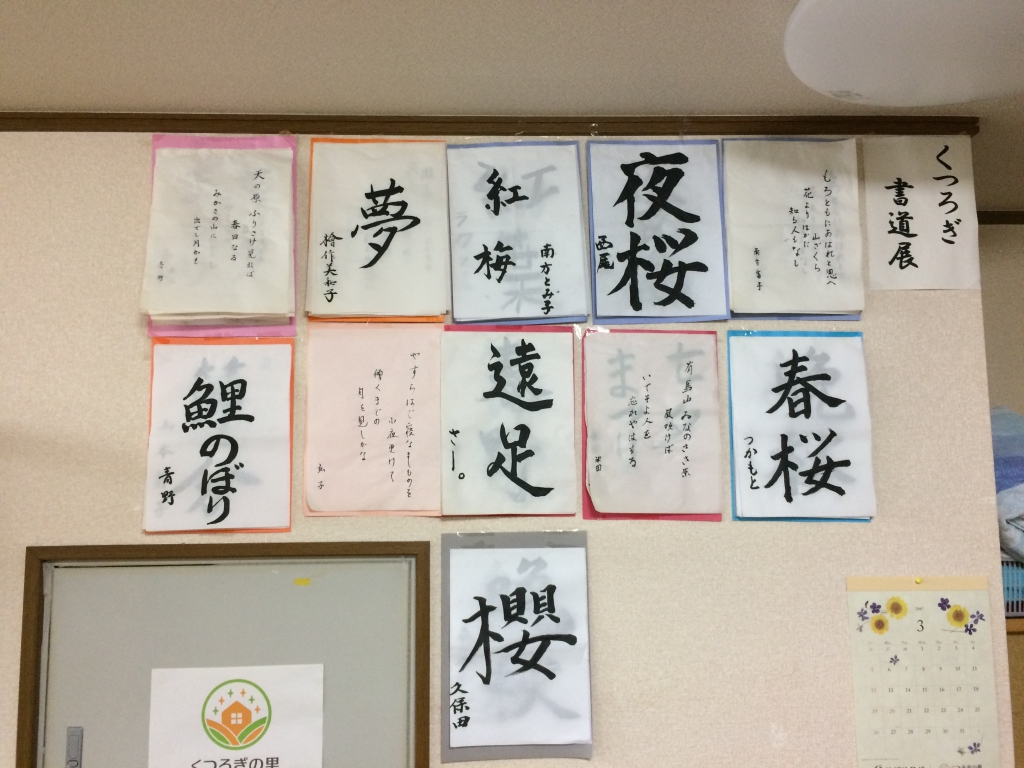 くつろぎ
書道展
もろともにあはれと思へ
山ざくら
花よりほかに
知る人もなし
夜桜
西尾
紅梅
南方とみ子
夢
檜作美和子
天の原 ふりさけ見れば
春日なる
みかさの山に
出でし月かも
青野
春桜
つかもと
有馬山 ゐなのささ原
風吹けば
いでそよ人を
忘れやはする
遠足
さー。
やすらはで寝なましものを
小夜更けて
傾くまでの
月を見しかな
鯉のぼり
青野
櫻
久保田
くつろぎの里
3